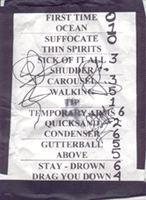 FIRST TIME 0
OCEAN 1
SUFFOCATE 0
THIN SPIRITS
SICK OF IT ALL 3
SHUDDER
CAROUSEL 3
WALKING 5
TIP 1
TEMPORARY ARMS 6
QUICKSAND
CONDENSER
GUTTERBALL 6
ABOVE 5
STAY - DROWN 6
DRAG YOU DOWN